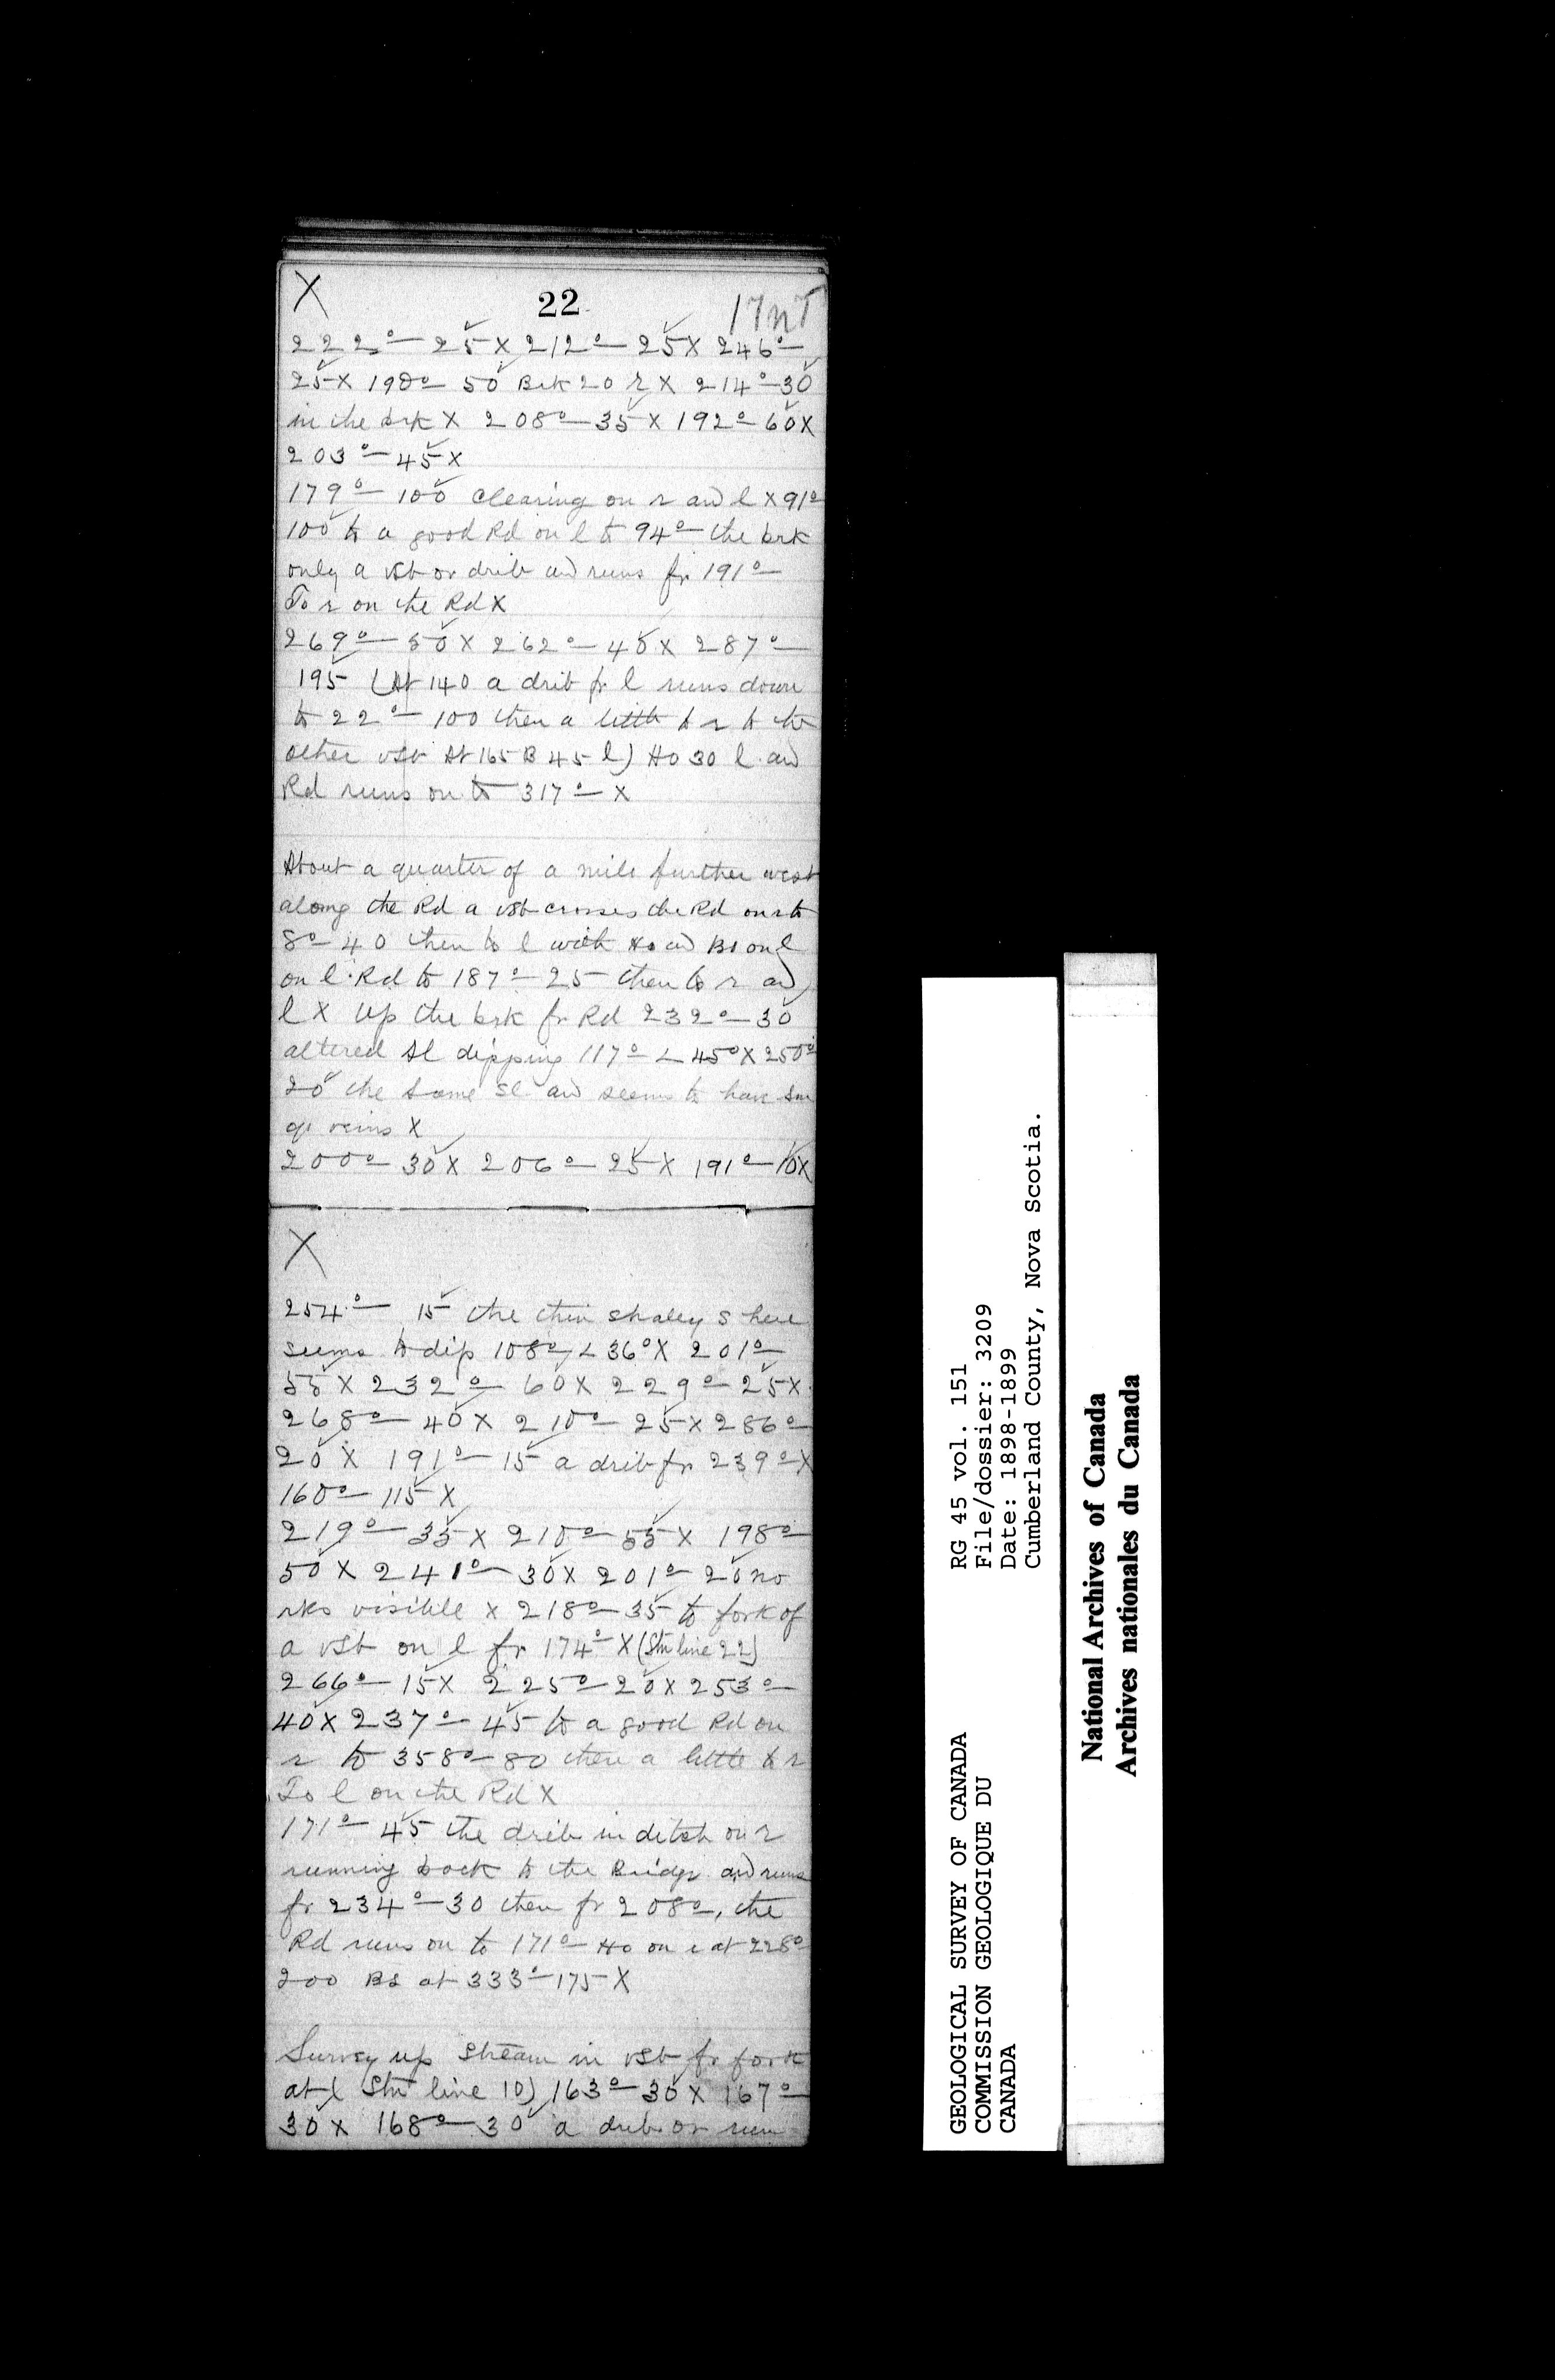 X 22 17nT
222° — 25 X 212° — 25 X 246° —
25 X 190° 50 Brk 20 r X 214° — 30
in the brk X 208° — 35 X 192° — 60 X
203° — 45 X
179° — 100 clearing on r and l X 91°
100 to a good Rd on l to 94° — the brk
only a vst or drib and runs fr 191° —
To r on the Rd X
269° — 50 X 262° — 40 X 287° —
195 (At 140 a drib fr l runs down
to 22° — 100 then a little to r to the
other vst At 165 B 45 l) Ho 30 l and
Rd runs on to 317° — X
About a quarter of a mile further west
along the Rd a vst crosses the Rd on r to
8° — 40 then to l with Ho and Bs on l
on l Rd to 187° — 25 then to r and
l X Up the brk fr Rd 232° — 30
altered Sl dipping 117° — < 45° X 250°
20 the same Sl and seems to have sm
qr veins X
200° — 30 X 206° — 25 X 191° — 10 X
X
254° — 15 the thin shaley S here
seems to dip 108° < 36° X 201° —
55 X 232° — 60 X 229° — 25 X
268° — 40 X 210° — 25 X 286° —
20 X 191° — 15 a drib fr 239° — X
160° — 115 X
219° — 35 X 210° — 55 X 198° —
50 X 241° — 30 X 201° — 20 no
rks visible X 218° — 35 to fork of
a vst on l fr 174° — X (Stn line 22)
266° — 15 X 225° — 20 X 253° —
40 X 237° — 45 to a good Rd on
r to 358° — 80 then a little to r
To l on the Rd X
171° — 45 the drib in ditch on r
running back to the Bridge and runs
fr 234° — 30 then fr 208° —, the
Rd runs on to 171° — Ho on r at 228° —
200 Bs at 333° — 175 X
Survey up stream in vst fr fork
at (Stn line 10) 163° — 30 X 167° —
30 X 168° — 30 a drib or run
RG 45 vol. 151
File/dossier: 3209
Date: 1898-1899
Cumberland County, Nova Scotia.
GEOLOGICAL SURVEY OF CANADA
COMMISSION GEOLOGIQUE DU
CANADA
National Archives of Canada
Archives nationales du Canada